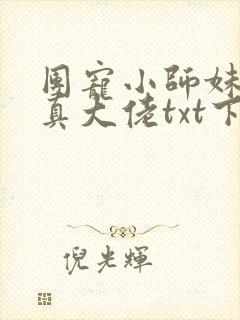 团寵小師妹
真大佬txt下
倪光輝